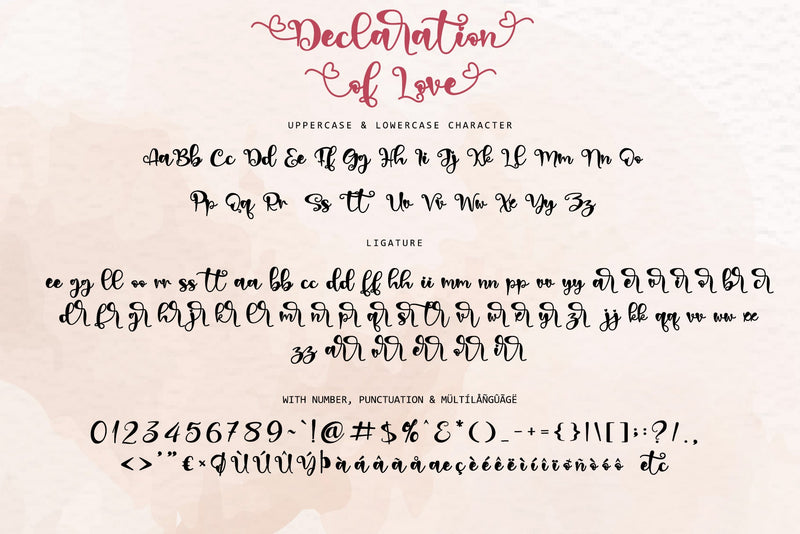 Declaration
of Love
UPPERCASE & LOWERCASE CHARACTER
Aa Bb Cc Dd Ee Ff Gg Hh Ii Jj Kk Ll Mm Nn Oo
Pp Qq Rr Ss Tt Uu Vv Ww Xx Yy Zz
LIGATURE
ee gg ll oo rr ss tt aa bb cc dd ff hh ii mm nn pp vv yy ar er or ir br cr
dr fr gr hr jr kr lr mr nr pr qr sr tr vr wr er yr zr jj kk qq vv ww xx
zz arr err orr irr
WITH NUMBER, PUNCTUATION & MÜLTÍLÅÑGÛÃGË
0123456789~`!@#$%^&*()_-+={}|\[];:?/.,
<>'"€×ØÙÚÛÜÝÞàáâãäåæçèéêëìíîïðñòóô etc